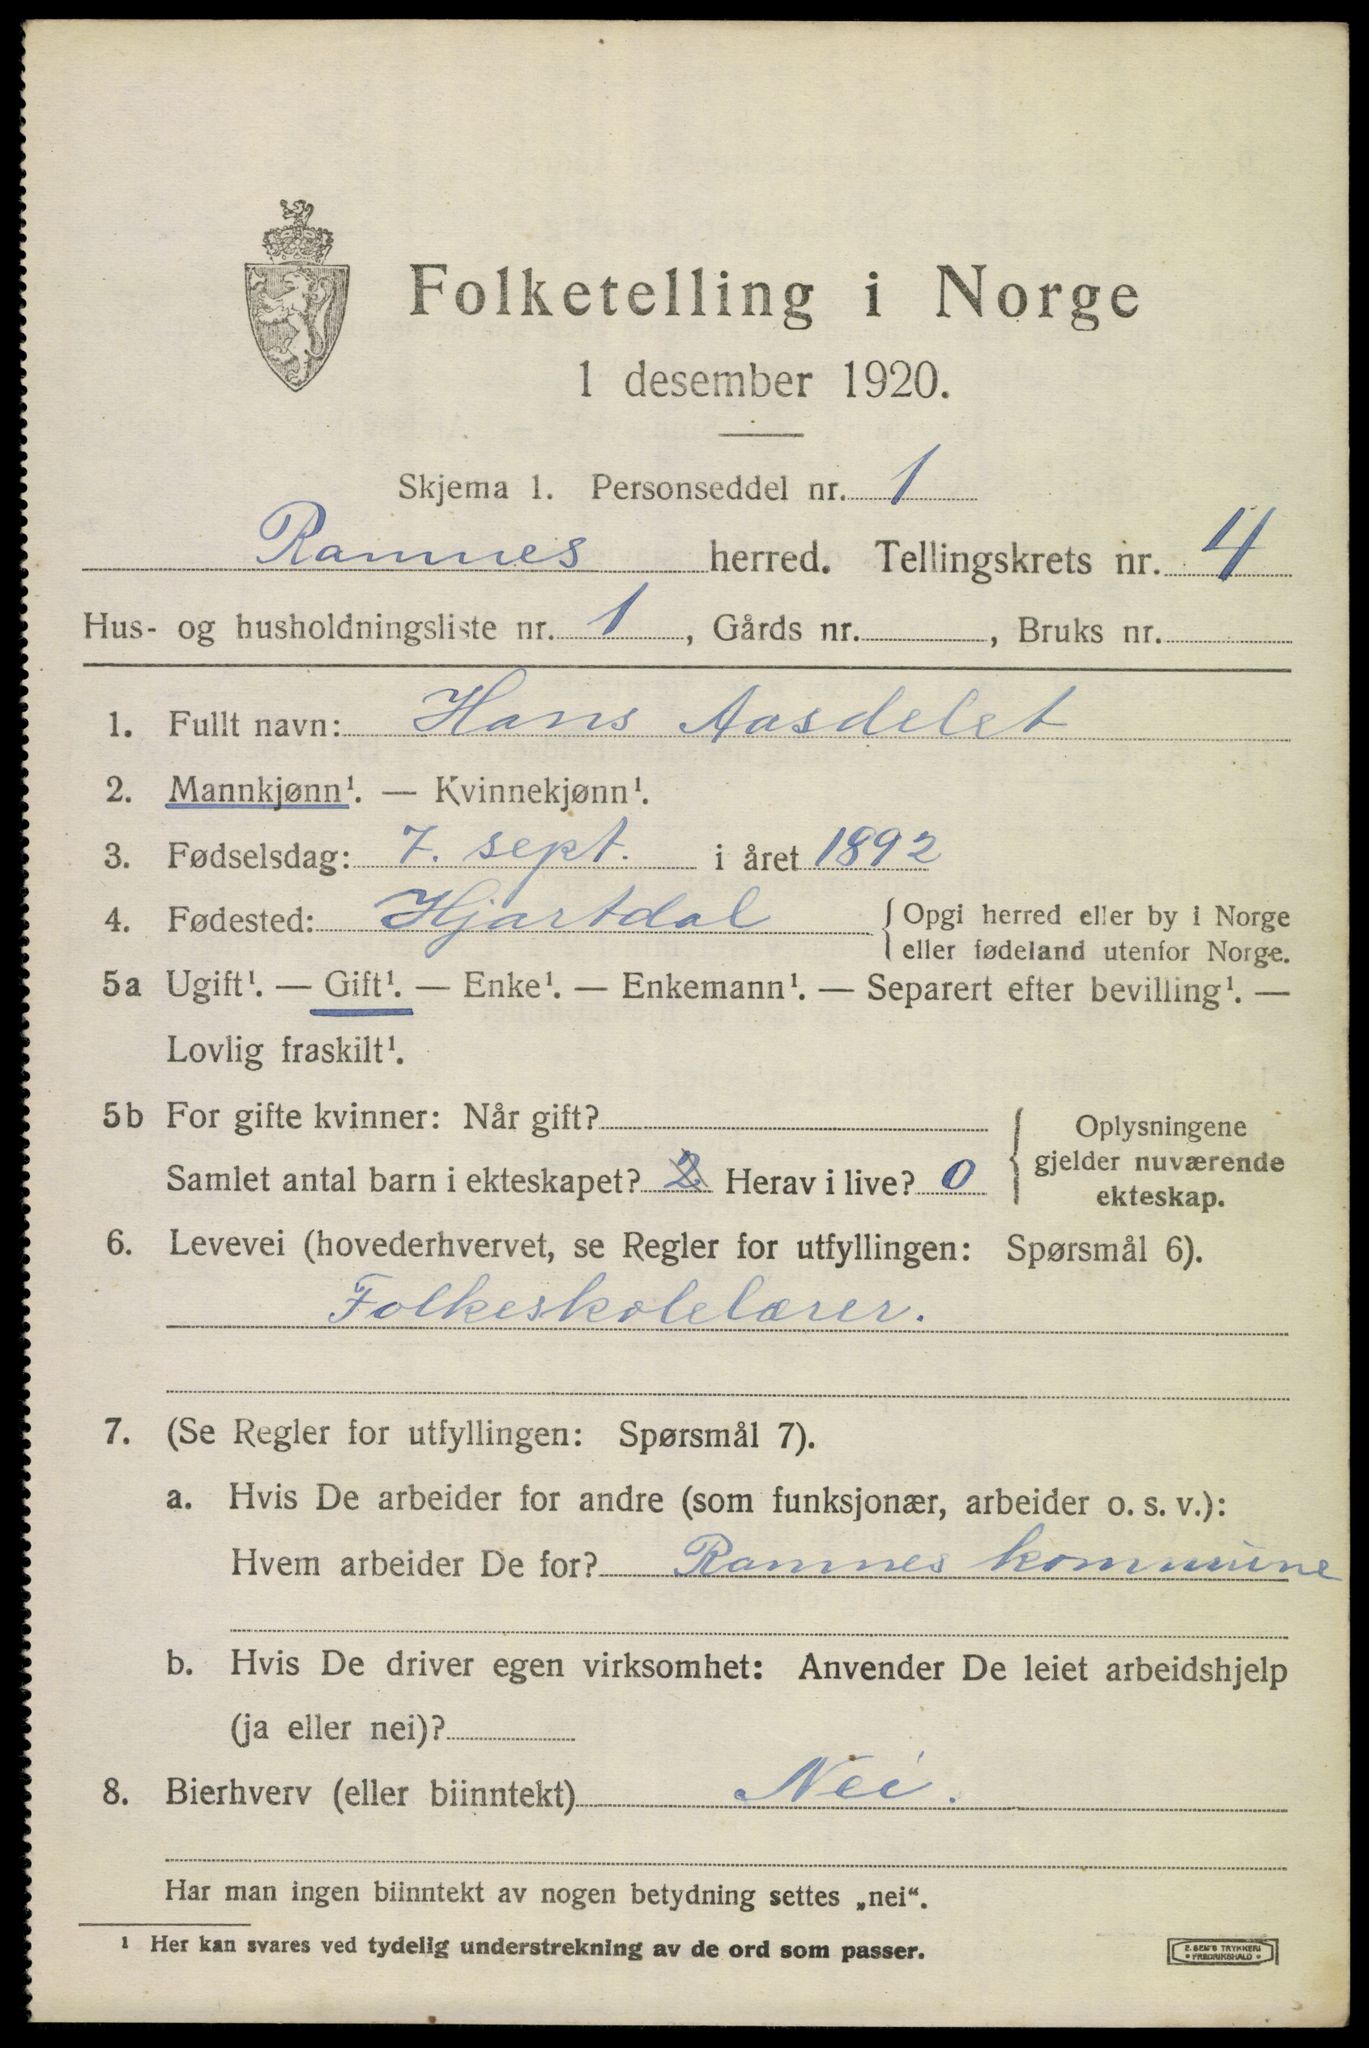 Folketelling i Norge
1 desember 1920.
Skjema 1. Personseddel nr. 1
Ramnes herred. Tellingskrets nr. 4
Hus- og husholdningsliste nr. 1, Gårds nr. , Bruks nr.
1. Fullt navn: Hans Aasdelet
2. Mannkjønn¹. — Kvinnekjønn¹.
3. Fødselsdag: 7. sept. i året 1892
4. Fødested: Hjartdal { Opgi herred eller by i Norge
eller fødeland utenfor Norge.
5a Ugift¹. — Gift¹. — Enke¹. — Enkemann¹. — Separert efter bevilling¹. —
Lovlig fraskilt¹.
5b For gifte kvinner: Når gift?
Samlet antal barn i ekteskapet? 2 Herav i live? 0
Oplysningene
gjelder nuværende
ekteskap.
6. Levevei (hovederhvervet, se Regler for utfyllingen: Spørsmål 6).
Folkeskolelærer.
7. (Se Regler for utfyllingen: Spørsmål 7).
a. Hvis De arbeider for andre (som funksjonær, arbeider o. s. v.):
Hvem arbeider De for? Ramnes kommune
b. Hvis De driver egen virksomhet: Anvender De leiet arbeidshjelp
(ja eller nei)?
8. Bierhverv (eller biinntekt) Nei.
Har man ingen biinntekt av nogen betydning settes „nei“.
¹ Her kan svares ved tydelig understrekning av de ord som passer.
E. SEM'S TRYKKERI
FREDRIKSHALD